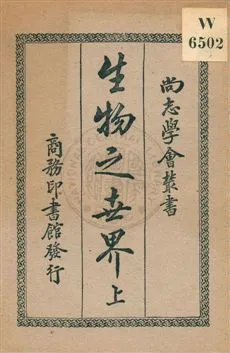 W
6502
尚志學會叢書
生物之世界 上
商務印書館發行